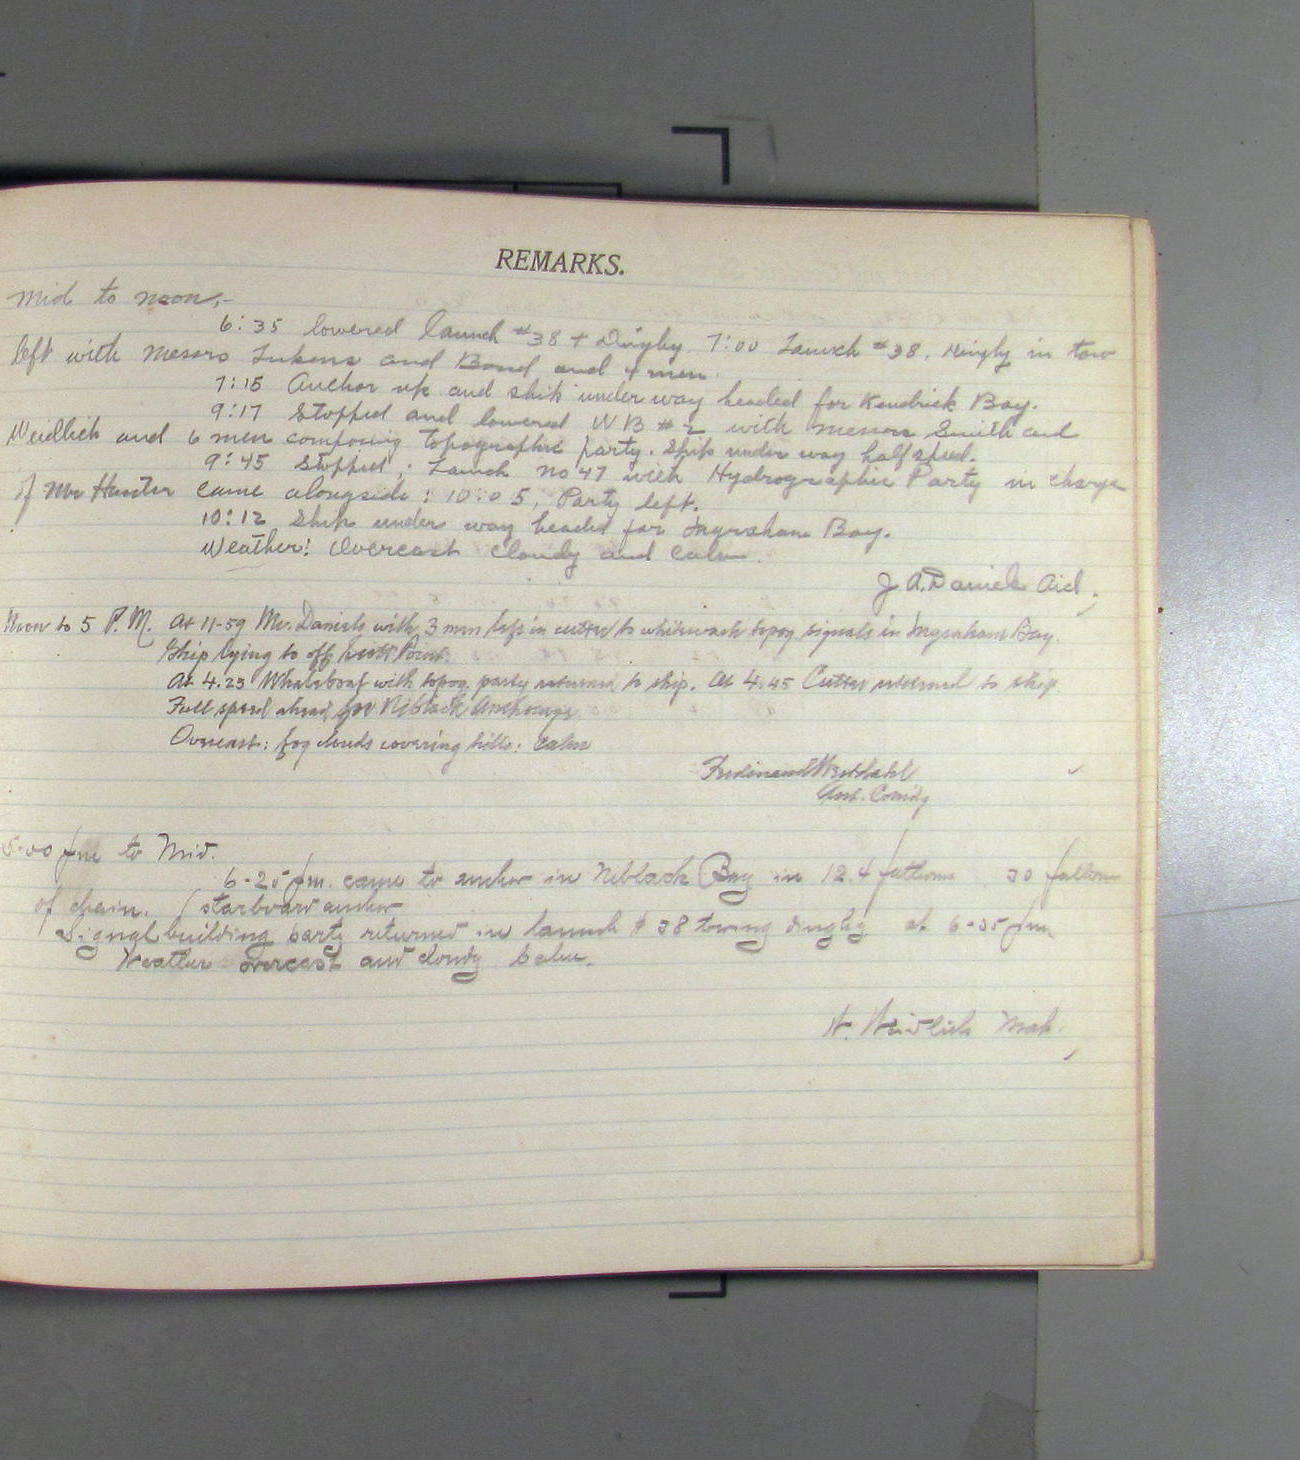 REMARKS.
Mid to noon,-
6:35 lowered launch #38 + Dinghy 7:00 Launch #38, dinghy in tow
left with Messrs Lukens and Bond and 4 men.
7:15 Anchor up and ship under way headed for Kendrick Bay.
9:17 Stopped and lowered WB #2 with Messrs Smith and
Weidlich and 6 men composing topographic party. Ship under way half speed.
9:45 Stopped; Launch No 47 with Hydrographic Party in charge
of Mr Hunter came alongside: 10:05, Party left.
10:12 Ship under way headed for Ingraham Bay.
Weather: Overcast cloudy and calm.
J A. Daniels Aid.
Noon to 5 P.M. At 11-59 Mr. Daniels with 3 men left in cutter to whitewash topog signals in Ingraham Bay.
Ship lying to off Scott Point.
At 4.25 Whaleboat with topog. party returned to ship. At 4.45 Cutter returned to ship
Full speed ahead for Niblack Anchorage.
Overcast: fog clouds covering hills: calm
Ferdinand Westdahl
Asst. Comdg
5-00 pm to Mid.
6-25 pm. came to anchor in Niblack Bay in 12.4 fathoms 30 fathoms
of chain. (starboard anchor
Signal building party returned in launch # 38 towing dinghy at 6-35 pm.
Weather overcast and cloudy calm.
W. Weidlich Mate